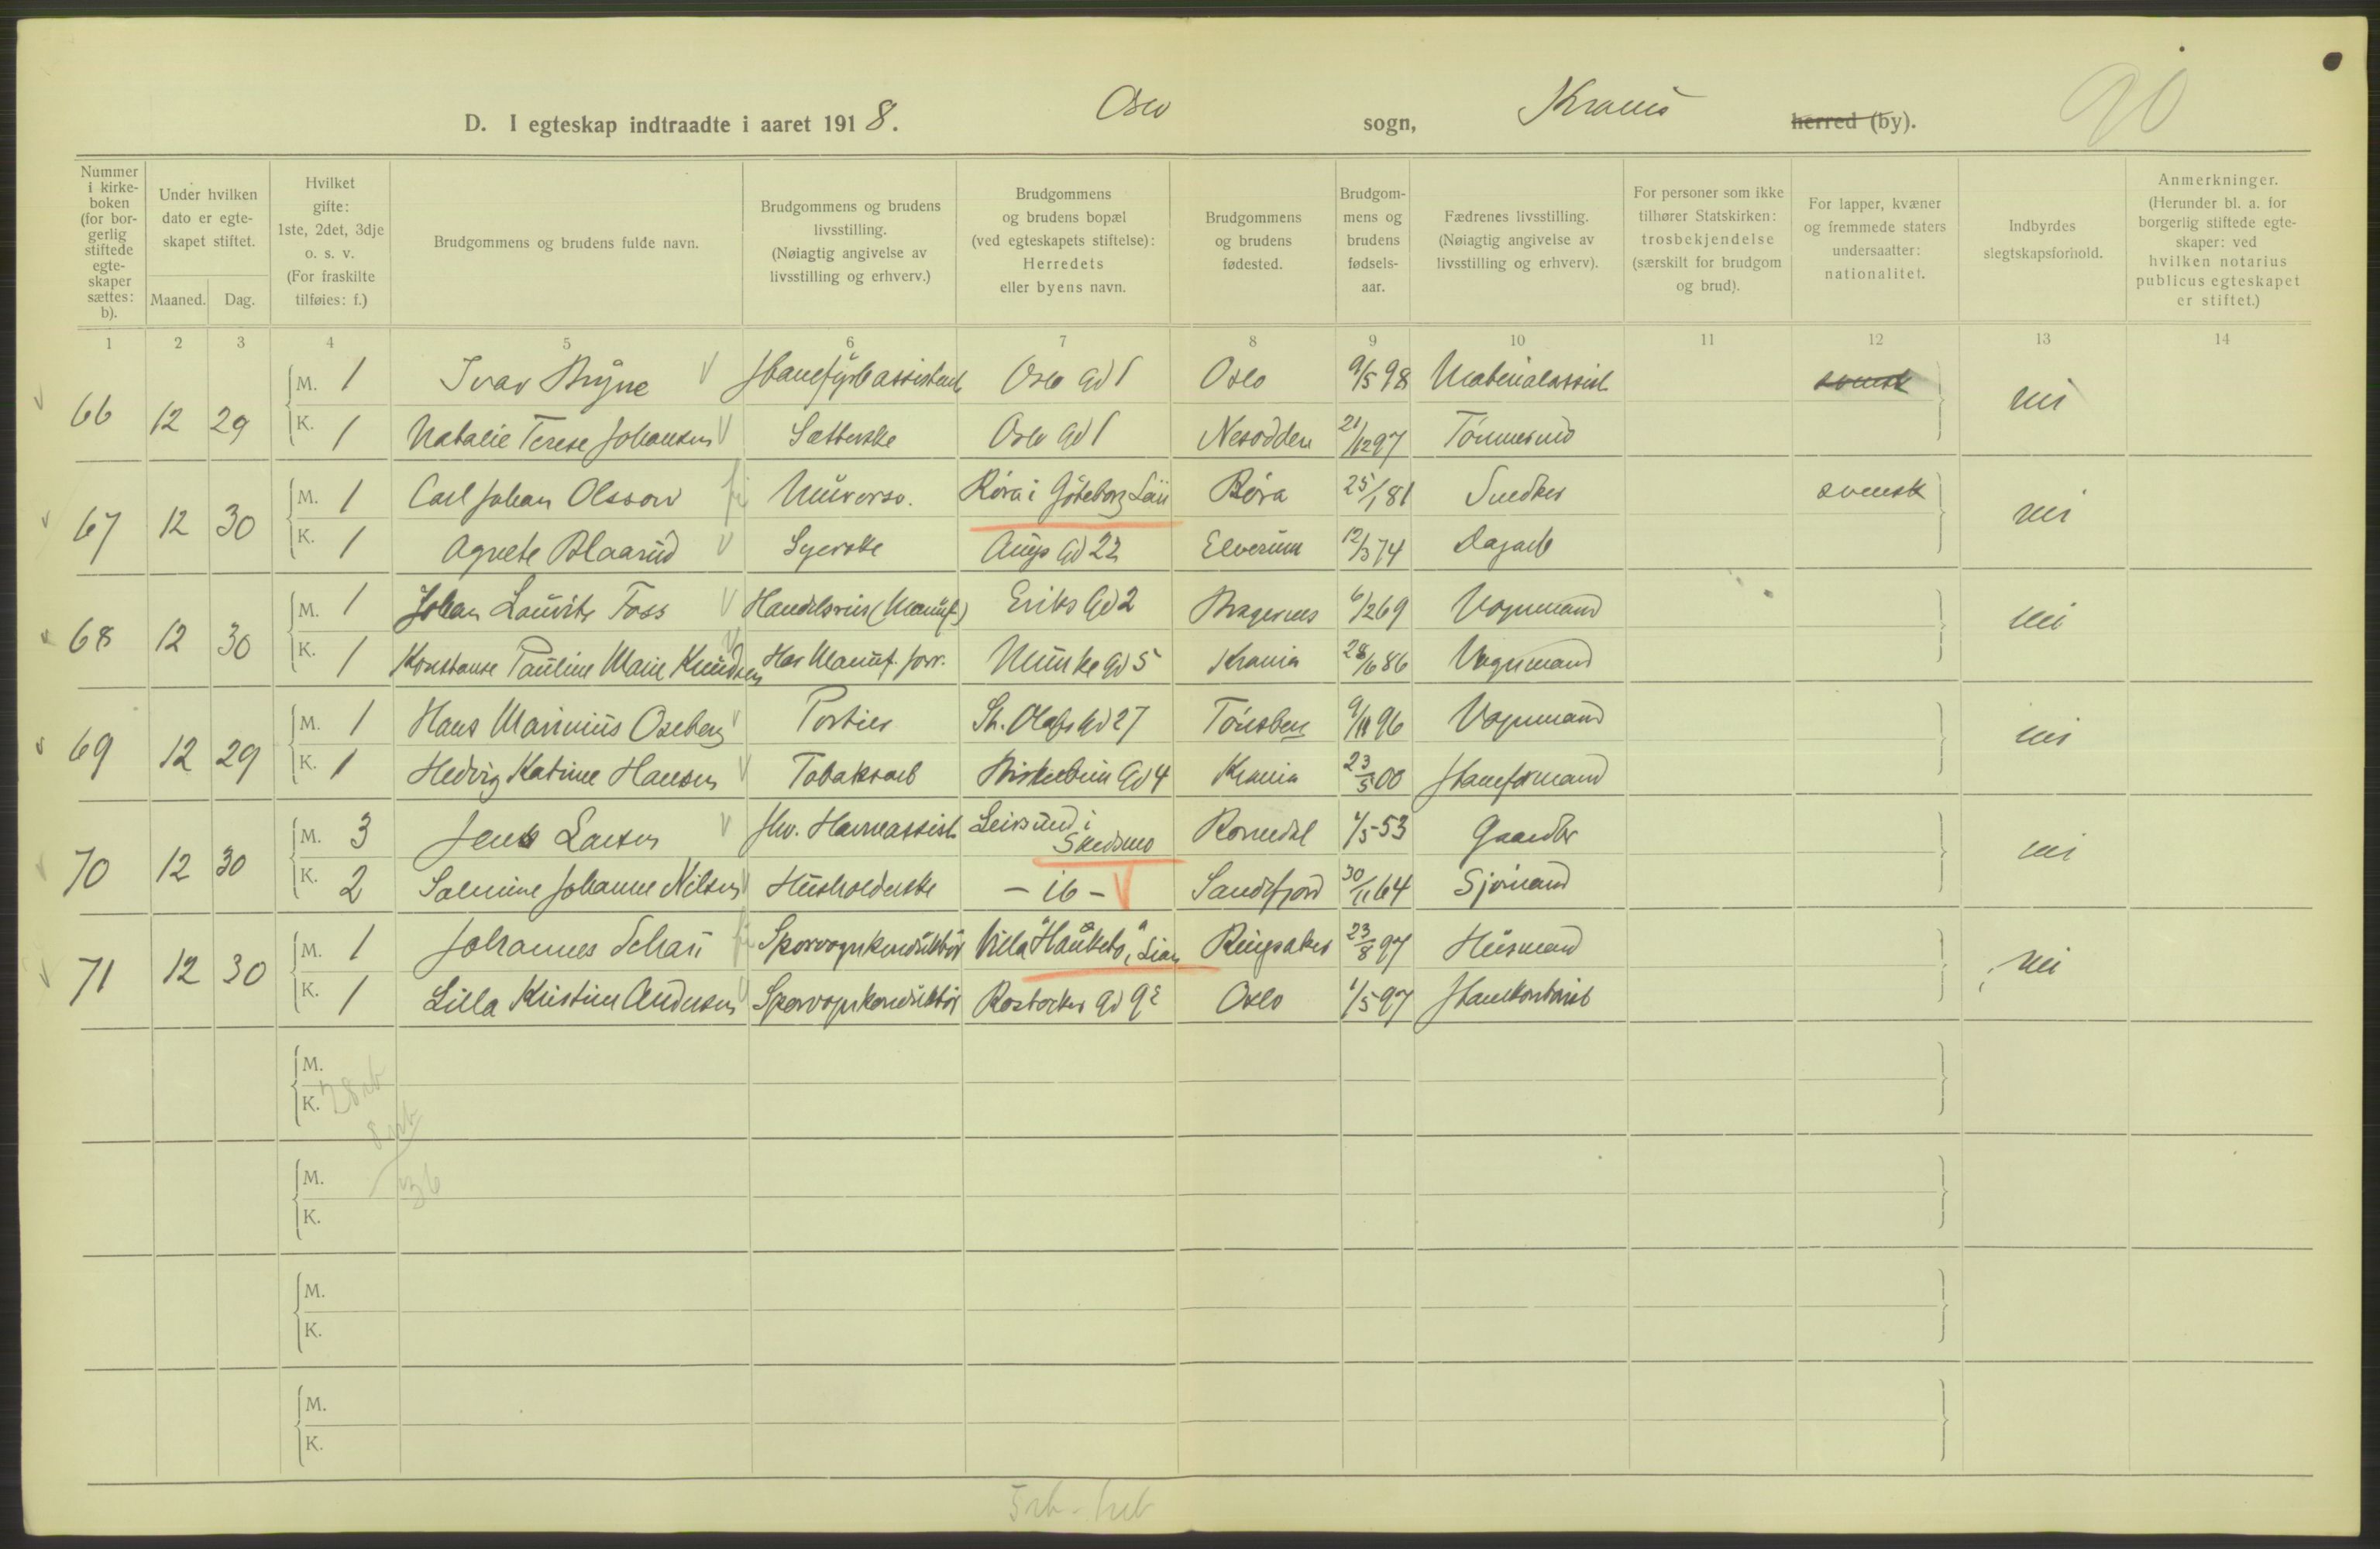 Oslo Krania 90
D. I egteskap indtraadte i aaret 1918. sogn, herred (by).
Nummer i kirkeboken (for borgerlig stiftede egteskaper sættes: b).
Under hvilken dato er egteskapet stiftet.
Maaned. Dag.
Hvilket gifte: 1ste, 2det, 3dje o. s. v. (For fraskilte tilføies: f.)
Brudgommens og brudens fulde navn.
Brudgommens og brudens livsstilling. (Nøiagtig angivelse av livsstilling og erhverv.)
Brudgommens og brudens bopæl (ved egteskapets stiftelse): Herredets eller byens navn.
Brudgommens og brudens fødested.
Brudgommens og brudens fødselsaar.
Fædrenes livsstilling. (Nøiagtig angivelse av livsstilling og erhverv).
For personer som ikke tilhører Statskirken: trosbekjendelse (særskilt for brudgom og brud).
For lapper, kvæner og fremmede staters undersaatter: nationalitet.
Indbyrdes slegtskapsforhold.
Anmerkninger. (Herunder bl. a. for borgerlig stiftede egteskaper: ved hvilken notarius publicus egteskapet er stiftet.)
1 2 3 4 5 6 7 8 9 10 11 12 13 14
M. 1 Ivar Bryne Oslo Gd 1 Oslo 9/5 98 Materialassist svensk
66 12 29 nei
K. 1 Natalie Terese Johansen Oslo Gd 1 Nesodden 21/12 97 Tømmermd
M. 1 Carl Johan Olsson Røra i Göteborg Län Røra 25/1 81 Snedker svensk
67 12 30 nei
K. 1 Agnete Blaarud Syerske Augs Gd 22 Elverum 12/3 74 Dagarb
M. 1 Johan Lauritz Foss Handelsreis (Manuf.) Eriks Gd 2 Bragernes 6/2 69 Vognmand
68 12 30 nei
K. 1 Konstanse Pauline Marie Knudsen Har Manuf. forr. Munke Gd 5 Krania 28/6 86 Vognmand
M. 1 Hans Marinius Oseberg Portier St. Olafs Gd 27 Tønsberg 9/11 96 Vognmand
69 12 29 nei
K. 1 Hedvig Katrine Hansen Tobaksarb Birkebein Gd 4 Krania 23/5 00 Stanseformand
M. 3 Jens Larsen fhv. Havneassist Leirsund i Skedsmo Romedal 1/5 53 Gaardbr
70 12 30 nei
K. 2 Salmine Johanne Nilsen Husholderske - ib - Sandefjord 30/11 64 Sjømand
M. 1 Johannes Schau Sporvognkonduktør Villa "Hauketo", Lian Ringsaker 23/8 97 Husmand
71 12 30 nei
K. 1 Lilla Kristine Andersen Sporvognkonduktør Rostocker Gd 9 Oslo 1/5 97
M.
K.
M.
K.
M.
K.
M.
K.